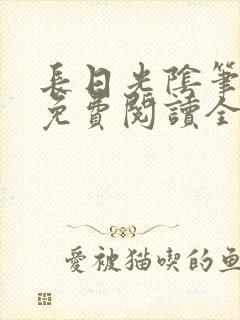 長日光陰筆
免費閱讀全
愛被猫喫的魚